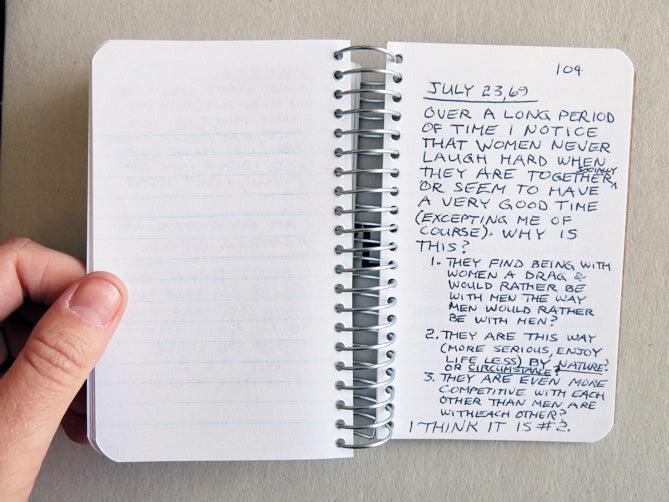 104
JULY 23, 69
OVER A LONG PERIOD
OF TIME I NOTICE
THAT WOMEN NEVER
LAUGH HARD WHEN
THEY ARE TOGETHER SOCIALLY
OR SEEM TO HAVE
A VERY GOOD TIME
(EXCEPTING ME OF
COURSE). WHY IS
THIS?
1. THEY FIND BEING WITH
WOMEN A DRAG &
WOULD RATHER BE
WITH MEN THE WAY
MEN WOULD RATHER
BE WITH MEN?
2. THEY ARE THIS WAY
(MORE SERIOUS, ENJOY
LIFE LESS) BY NATURE?
OR CIRCUMSTANCE?
3. THEY ARE EVEN MORE
COMPETITIVE WITH EACH
OTHER THAN MEN ARE
WITH EACH OTHER?
I THINK IT IS #2.